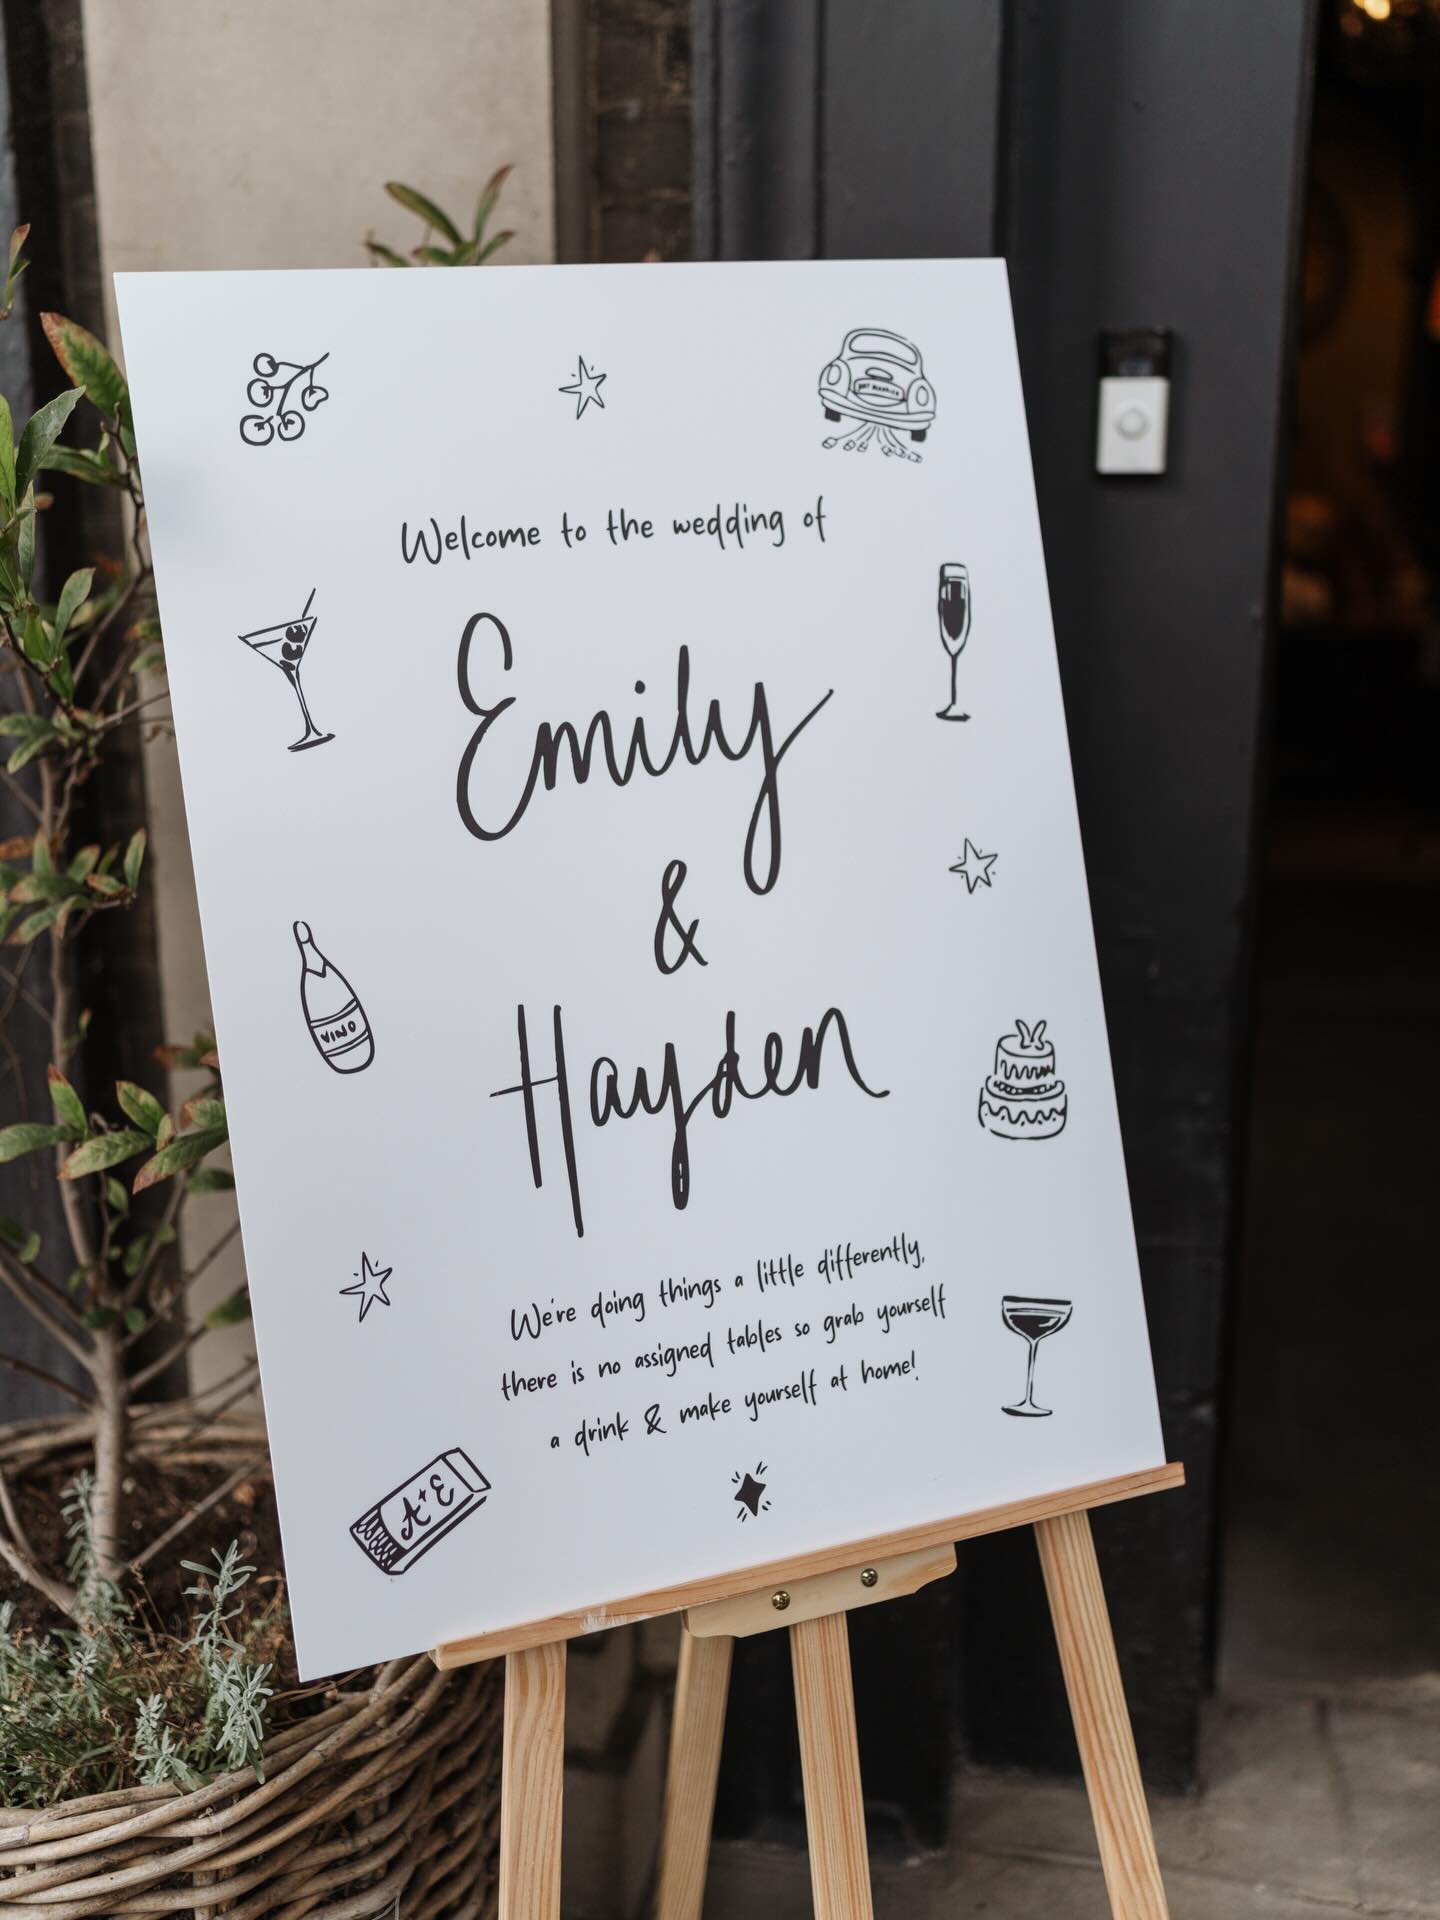 JUST MARRIED
Welcome to the wedding of
Emily
&
Hayden
VINO
We're doing things a little differently,
there is no assigned tables so grab yourself
a drink & make yourself at home!
A+E